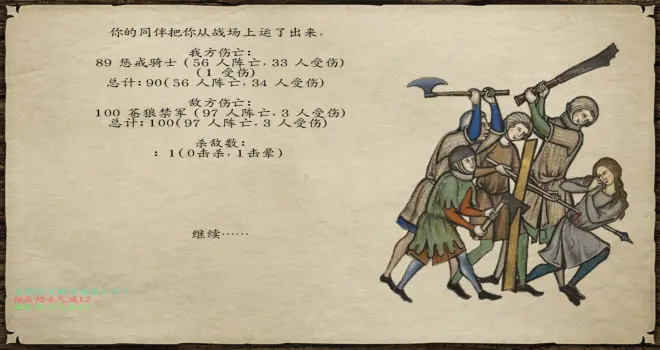 你的同伴把你从战场上运了出来。
我方伤亡:
89 惩戒骑士 (56 人阵亡, 33 人受伤)
(1 受伤)
总计: 90(56 人阵亡, 34 人受伤)
敌方伤亡:
100 苍狼禁军 (97 人阵亡, 3 人受伤)
总计: 100(97 人阵亡, 3 人受伤)
杀敌数:
: 1(0击杀, 1击晕)
继续……
的士气减12